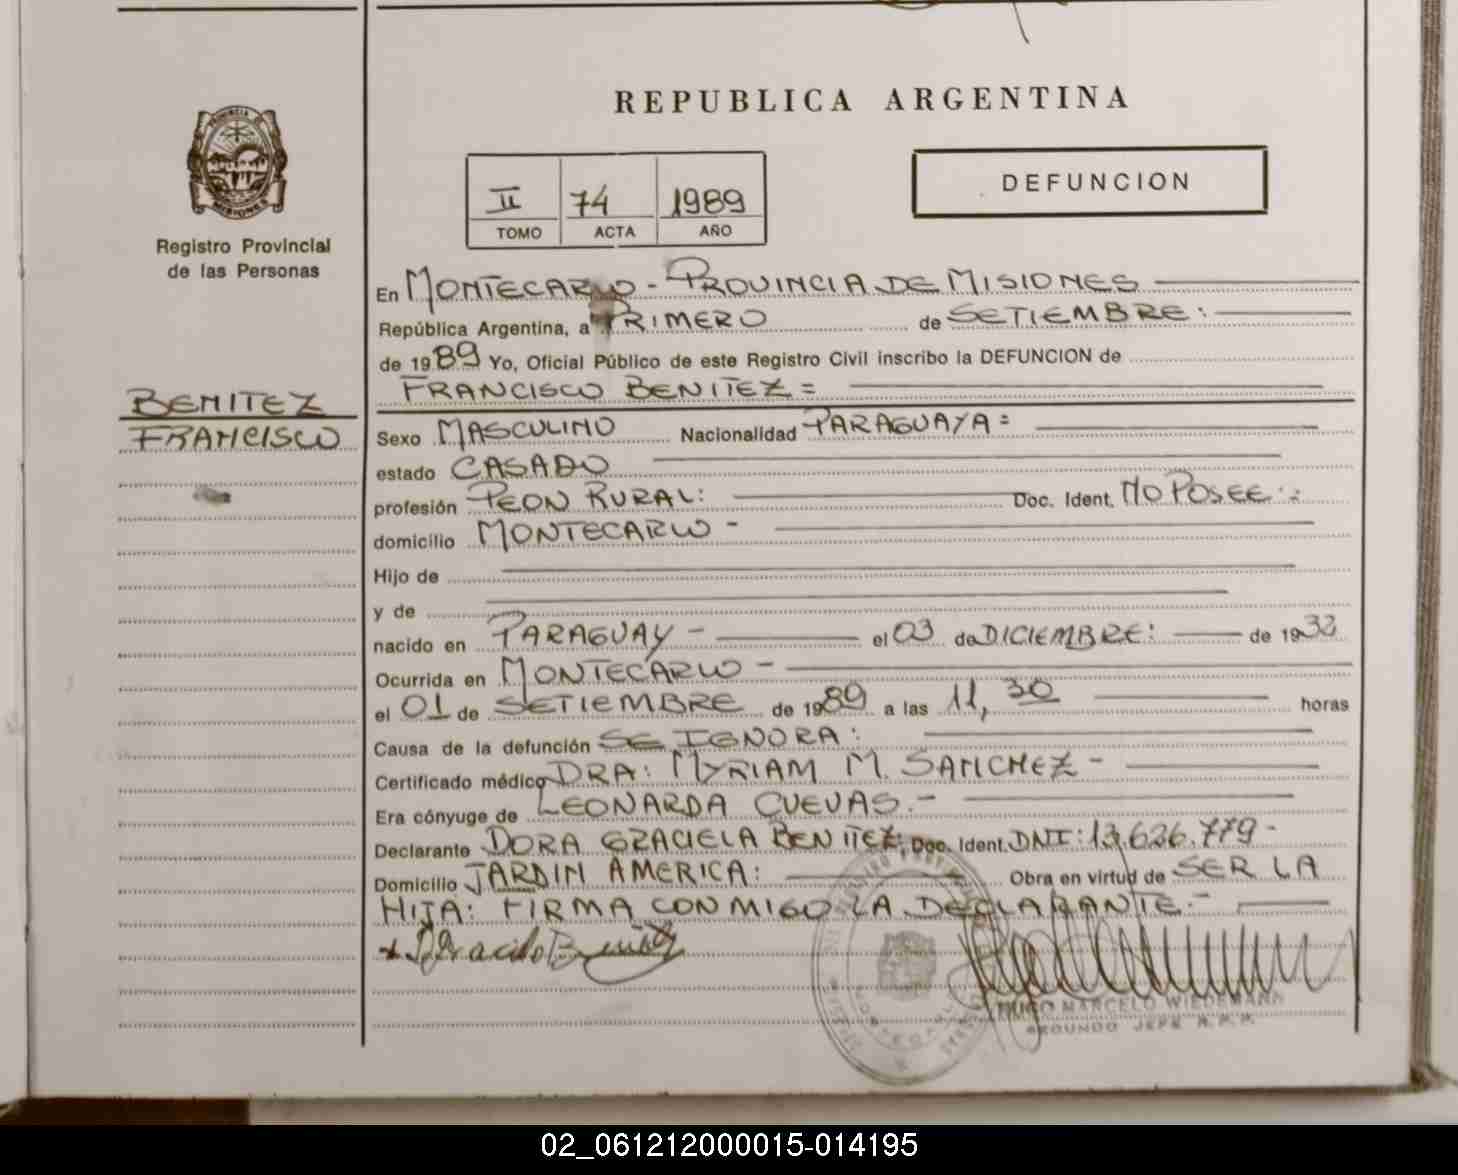 REPUBLICA ARGENTINA
PROVINCIA DE
MISIONES
Registro Provincial
de las Personas
II 74 1989
TOMO ACTA AÑO
DEFUNCION
En MONTECARLO - PROVINCIA DE MISIONES
República Argentina, a PRIMERO de SETIEMBRE:
de 1989 Yo, Oficial Público de este Registro Civil inscribo la DEFUNCION de
FRANCISCO BENITEZ =
BENITEZ
FRANCISCO
Sexo MASCULINO Nacionalidad PARAGUAYA =
estado CASADO
profesión PEON RURAL: Doc. Ident. NO POSEE.:
domicilio MONTECARLO -
Hijo de
y de
nacido en PARAGUAY - el 03 de DICIEMBRE: de 1933
Ocurrida en MONTECARLO -
el 01 de SETIEMBRE de 1989 a las 11,30 horas
Causa de la defunción SE IGNORA:
Certificado médico DRA: MYRIAM M. SANCHEZ -
Era cónyuge de LEONARDA CUEVAS.-
Declarante DORA GRACIELA BENITEZ: Doc. Ident. DNI: 13,626.779 -
Domicilio JARDIN AMERICA: Obra en virtud de SER LA
HIJA: FIRMA CONMIGO LA DECLARANTE.-
HUGO MARCELO WIEDEMANN
SEGUNDO JEFE R.P.P.
02_061212000015-014195